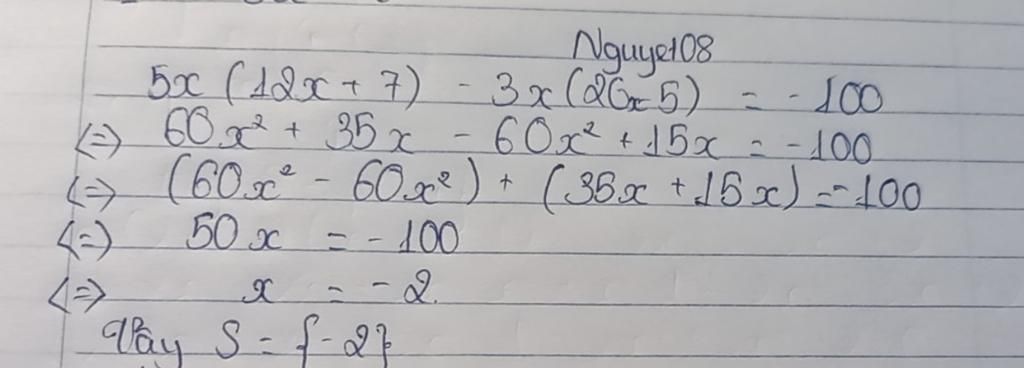 Nguyet08
5x (12x + 7) - 3x (20x - 5) = - 100
<=> 60x² + 35x - 60x² + 15x = - 100
<=> (60x² - 60x²) + (35x + 15x) = - 100
<=> 50x = - 100
<=> x = - 2.
Vậy S = {- 2}